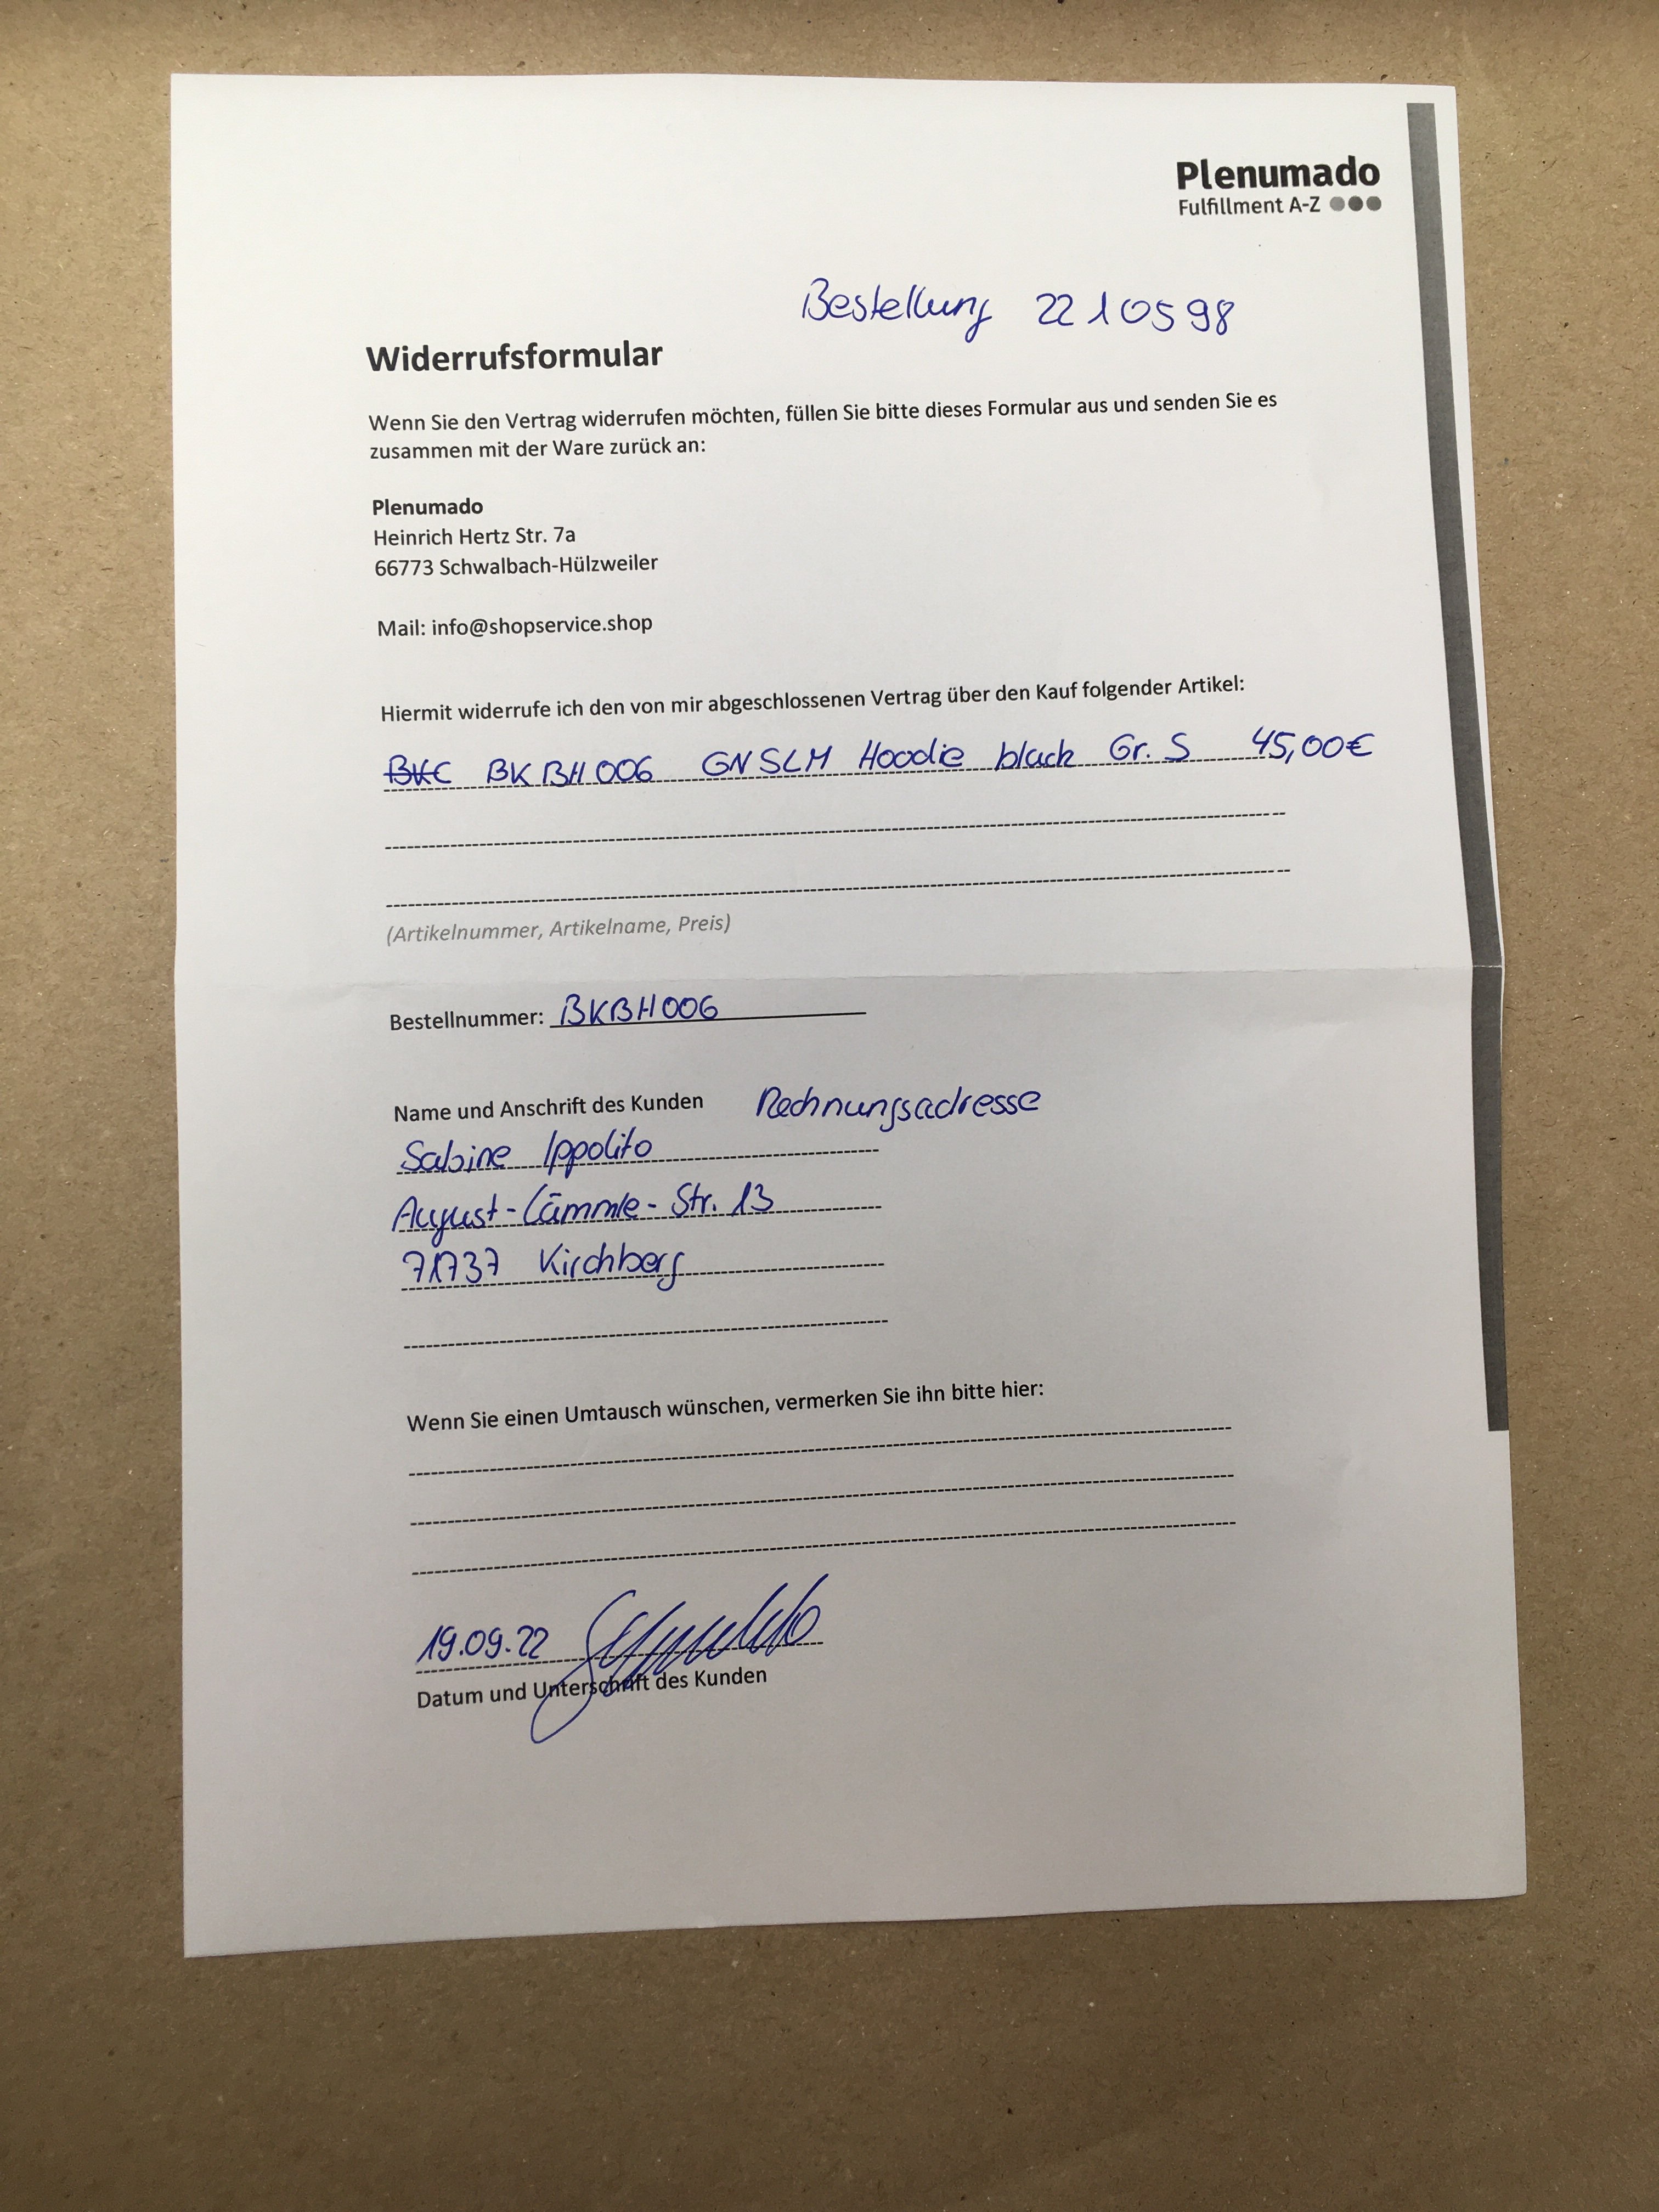 Plenumado
Fulfillment A-Z
Bestellung 2210598
Widerrufsformular
Wenn Sie den Vertrag widerrufen möchten, füllen Sie bitte dieses Formular aus und senden Sie es
zusammen mit der Ware zurück an:
Plenumado
Heinrich Hertz Str. 7a
66773 Schwalbach-Hülzweiler
Mail: info@shopservice.shop
Hiermit widerrufe ich den von mir abgeschlossenen Vertrag über den Kauf folgender Artikel:
BKBH006 GNSLM Hoodie black Gr. S 45,00€
(Artikelnummer, Artikelname, Preis)
Bestellnummer: BKBH006
Name und Anschrift des Kunden Rechnungsadresse
Sabine Ippolito
August-Lämmle-Str. 13
71737 Kirchberg
Wenn Sie einen Umtausch wünschen, vermerken Sie ihn bitte hier:
19.09.22
Datum und Unterschrift des Kunden